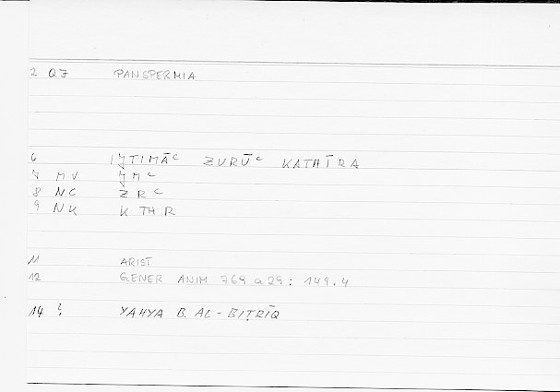 2 QZ PANSPERMIA
6 IJTIMĀC ZURŪC KATHĪRA
7 MV JMC
8 NC ZRC
9 NK KTHR
11 ARIST
12 GENER ANIM 769 a 29: 149.4
14 ? YAHYA B. AL-BIṬRĪQ